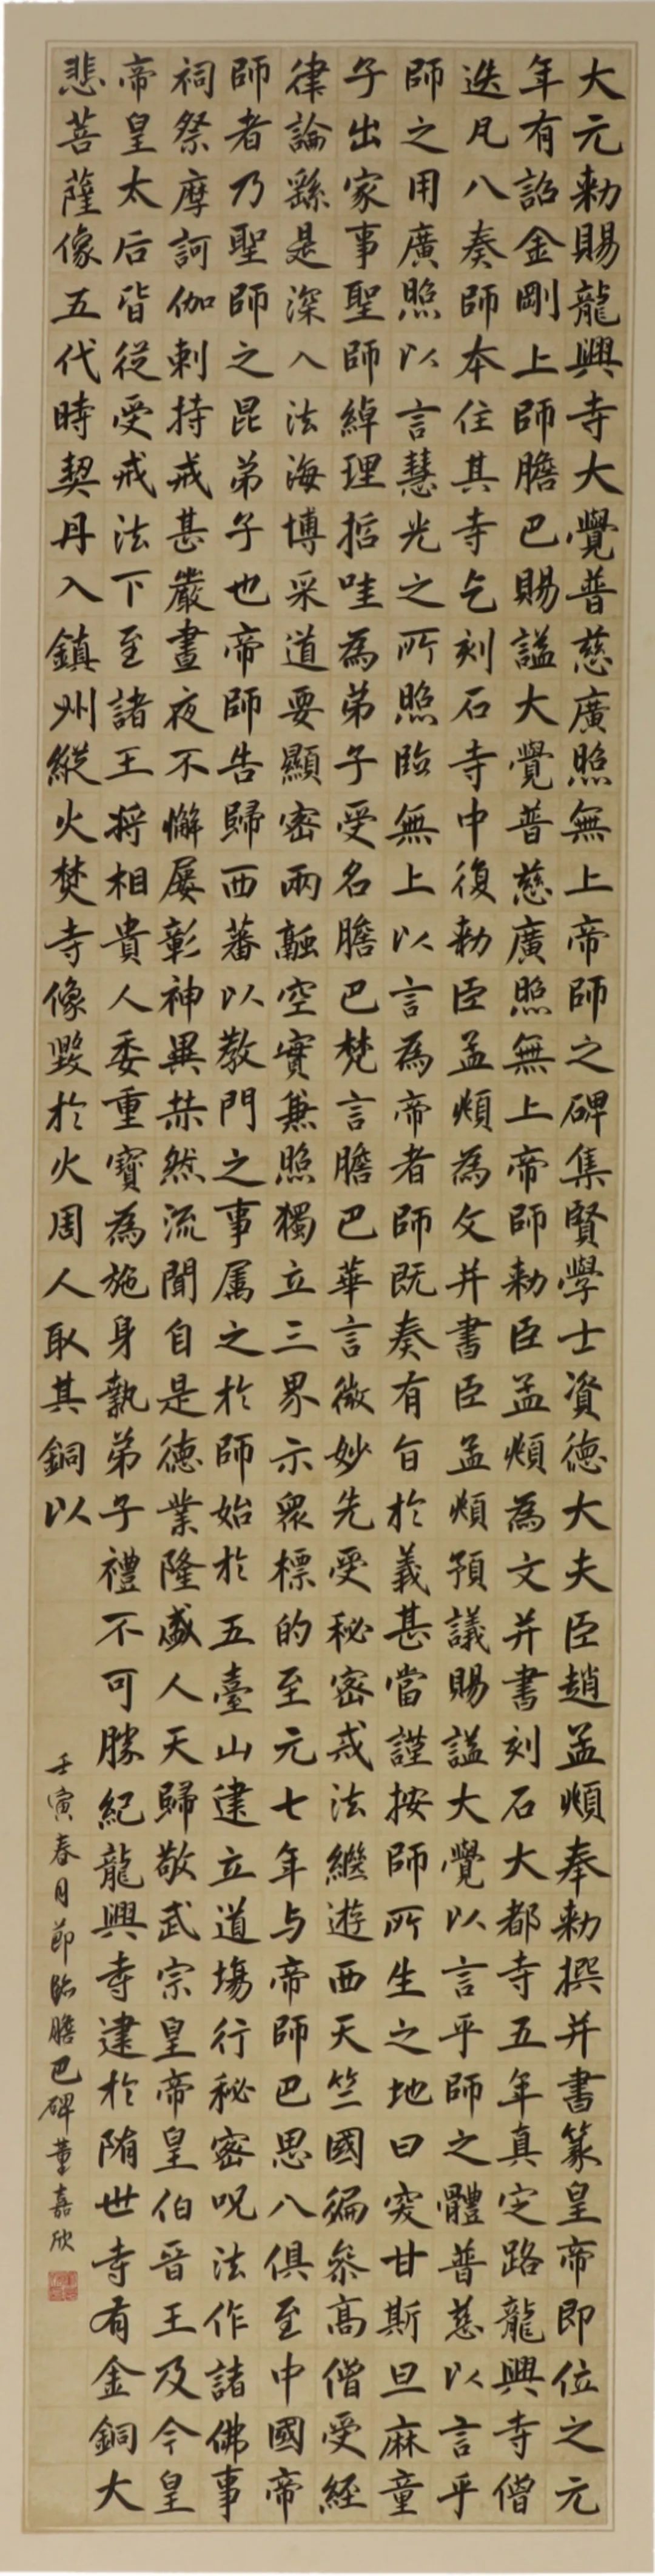 大元勅賜龍興寺大覺普慈廣照無上帝師之碑集賢學士資德大夫臣趙孟頫奉勅撰并書篆皇帝即位之元
年有詔金剛上師膽巴賜謚大覺普慈廣照無上帝師勅臣孟頫為文并書刻石大都寺五年真定路龍興寺僧
迭凡八奏師本住其寺乞刻石寺中復勅臣孟頫為文并書臣孟頫預議賜謚大覺以言乎師之體普慈以言乎
師之用廣照以言慧光之所照臨無上以言為帝者師既奏有旨於義甚當謹按師所生之地曰突甘斯旦麻童
子出家事聖師綽理哲哇為弟子受名膽巴梵言膽巴華言微妙先受秘密戒法繼遊西天竺國徧參高僧受經
律論繇是深入法海博采道要顯密兩融空實兼照獨立三界示眾標的至元七年与帝師巴思八俱至中國帝
師者乃聖師之昆弟子也帝師告歸西蕃以教門之事属之於師始於五臺山建立道場行秘密呪法作諸佛事
祠祭摩訶伽剌持戒甚嚴晝夜不懈屢彰神異赫然流聞自是德業隆盛人天歸敬武宗皇帝皇伯晉王及今皇
帝皇太后皆從受戒法下至諸王將相貴人委重寶為施身執弟子禮不可勝紀龍興寺建於隋世寺有金銅大
悲菩薩像五代時契丹入鎮州縱火焚寺像毀於火周人取其銅以
壬寅春月節臨膽巴碑董嘉欣